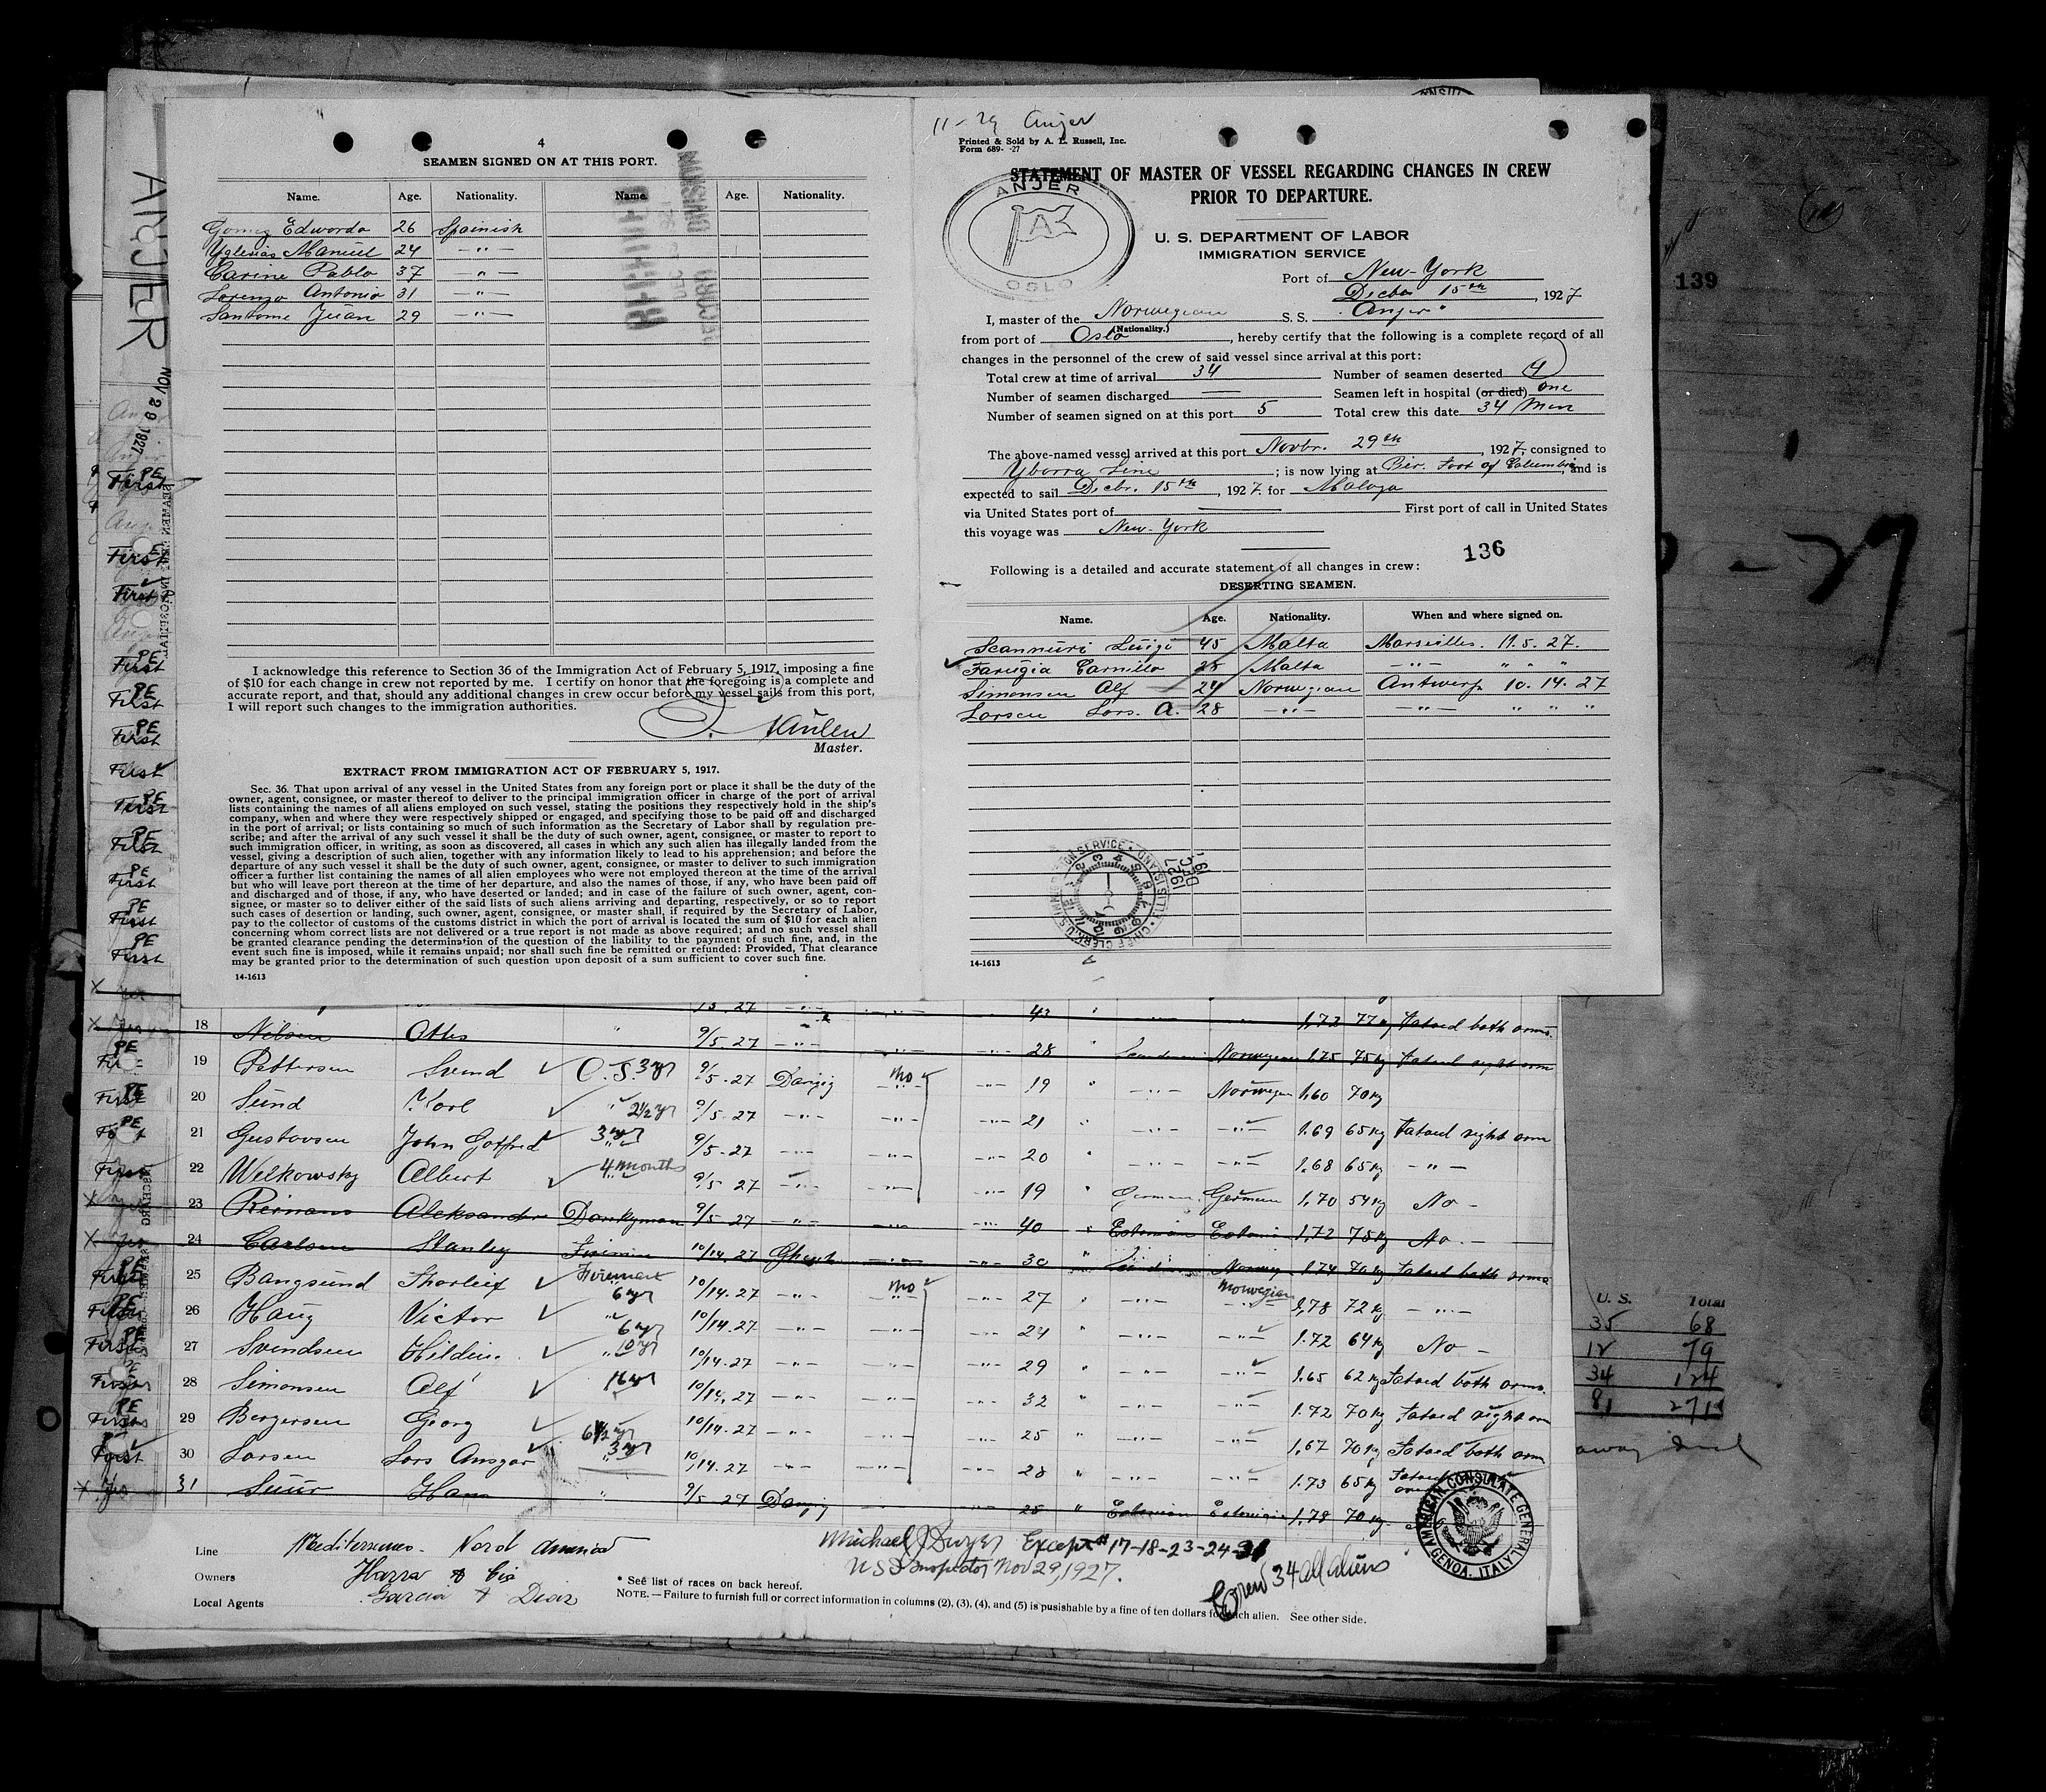 4
SEAMEN SIGNED ON AT THIS PORT.
Name. Age. Nationality. Name. Age. Nationality.
Gomez Edwardo 26 Spainish
Yglesias Manuel 24 — " —
Carine Pablo 37 — " —
Lorenzo Antonio 31 — " —
Santome Juan 29 — " —
I acknowledge this reference to Section 36 of the Immigration Act of February 5, 1917, imposing a fine
of $10 for each change in crew not reported by me. I certify on honor that the foregoing is a complete and
accurate report, and that, should any additional changes in crew occur before my vessel sails from this port,
I will report such changes to the immigration authorities.
Master.
EXTRACT FROM IMMIGRATION ACT OF FEBRUARY 5, 1917.
Sec. 36. That upon arrival of any vessel in the United States from any foreign port or place it shall be the duty of the
owner, agent, consignee, or master thereof to deliver to the principal immigration officer in charge of the port of arrival
lists containing the names of all aliens employed on such vessel, stating the positions they respectively hold in the ship's
company, when and where they were respectively shipped or engaged, and specifying those to be paid off and discharged
in the port of arrival; or lists containing so much of such information as the Secretary of Labor shall by regulation pre-
scribe; and after the arrival of any such vessel it shall be the duty of such owner, agent, consignee, or master to report to
such immigration officer, in writing, as soon as discovered, all cases in which any such alien has illegally landed from the
vessel, giving a description of such alien, together with any information likely to lead to his apprehension; and before the
departure of any such vessel it shall be the duty of such owner, agent, consignee, or master to deliver to such immigration
officer a further list containing the names of all alien employees who were not employed thereon at the time of the arrival
but who will leave port thereon at the time of her departure, and also the names of those, if any, who have been paid off
and discharged and of those, if any, who have deserted or landed; and in case of the failure of such owner, agent, con-
signee, or master so to deliver either of the said lists of such aliens arriving and departing, respectively, or so to report
such cases of desertion or landing, such owner, agent, consignee, or master shall, if required by the Secretary of Labor,
pay to the collector of customs of the customs district in which the port of arrival is located the sum of $10 for each alien
concerning whom correct lists are not delivered or a true report is not made as above required; and no such vessel shall
be granted clearance pending the determination of the question of the liability to the payment of such fine, and, in the
event such fine is imposed, while it remains unpaid; nor shall such fine be remitted or refunded: Provided, That clearance
may be granted prior to the determination of such question upon deposit of a sum sufficient to cover such fine.
14-1613
11-29 Anjer
Printed & Sold by A. E. Russell, Inc.
Form 689- -27
STATEMENT OF MASTER OF VESSEL REGARDING CHANGES IN CREW
PRIOR TO DEPARTURE.
ANJER
A
OSLO
U. S. DEPARTMENT OF LABOR
IMMIGRATION SERVICE
Port of New-York
Decbr 15th, 1927
I, master of the Norwegian S. S. "Anjer"
(Nationality.)
from port of Oslo, hereby certify that the following is a complete record of all
changes in the personnel of the crew of said vessel since arrival at this port:
Total crew at time of arrival 34 Number of seamen deserted 4
Number of seamen discharged — Seamen left in hospital (or died) one
Number of seamen signed on at this port 5 Total crew this date 34 Men
The above-named vessel arrived at this port Novbr. 29th, 1927, consigned to
Yborra Line; is now lying at Pier. Foot of Columbia, and is
expected to sail Decbr. 15th, 1927 for Malaga
via United States port of — First port of call in United States
this voyage was New-York
136
Following is a detailed and accurate statement of all changes in crew:
DESERTING SEAMEN.
Name. Age. Nationality. When and where signed on.
Scannuri Luigi 45 Malta Marseilles. 11.5.27.
Farugia Carmillo 28 Malta — " — " " "
Simonsen Alf 24 Norwegian Antwerp 10.14.27
Larsen Lars. A. 28 — " — — " — " " "
14-1613
ANJER
NOV 29 1927
139
18 Nilsen Otto " 9/5-27 28 Norwegian 1.75 75kg Tatoed right arm
19 Pettersen Svend O.S. 3 yr 9/5-27 Danzig no 19 Norwegian 1.60 70kg
20 Sund Karl " 2 1/2 yr 9/5-27 21 1.69 65kg Tatoed right arm
21 Gustavsen John Gotfred 3 yr 9/5-27 20 1.68 65kg — " —
22 Welkowsky Albert 4 months 9/5 27 19 German German 1.70 54kg No -
23 Reimans Aleksander Donkyman 9/5-27 40 Estonian Estonian 1.72 75kg No -
24 Carlsen Stanley Fireman 10/14.27 30 1.74 70kg Tatoed both arms
25 Bangsund Thorleif Fireman 6 yr 10/14.27 no 27 Norwegian 1.78 72kg — " —
26 Haug Victor " 6 yr 10/14.27 24 1.72 64kg No -
27 Svendsen Hilding " 10 yr 10/14.27 29 1.65 62kg Tatoed both arms.
28 Simonsen Alf 16 yr 10/14.27 32 1.72 70kg Tatoed right arm
29 Bergersen Georg 6 1/2 yr 10/14.27 25 1.67 70kg Tatoed both arm
30 Larsen Lars Ansgar 3 yr 10/14.27 28 1.73 65kg Tatoed
31 Suur Hans " 9/5 27 Danzig 25 Estonian Estonian 1.78 70kg
Line Mediterraneo - Nord America
Owners Ybarra & Cia
Local Agents Garcia & Diaz
* See list of races on back hereof.
NOTE.—Failure to furnish full or correct information in columns (2), (3), (4), and (5) is punishable by a fine of ten dollars for each alien. See other side.
Michael J Dwyer Except # 17-18-23-24-31
U S Inspector Nov 29, 1927.
Crew 34 all aliens
AMERICAN CONSULATE GENERAL
GENOA, ITALY
U. S. Total
35 68
12 79
34 124
81 271